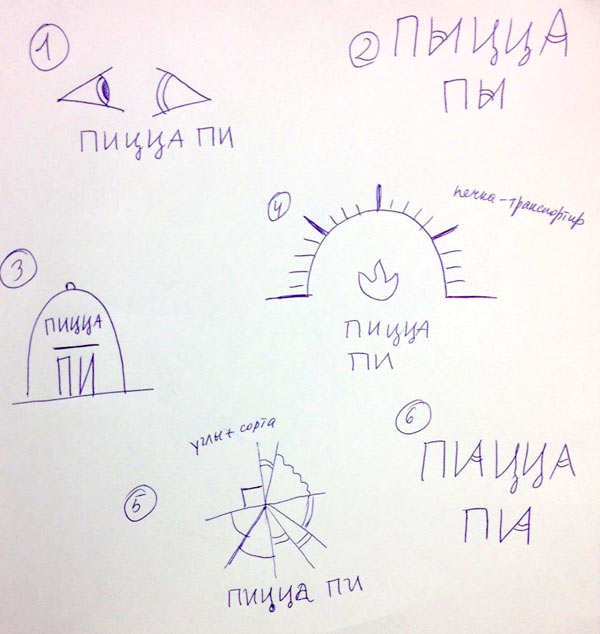 1
ПИЦЦА ПИ
2
ПИЦЦА
ПИ
3
ПИЦЦА
ПИ
4
печка-транспортир
ПИЦЦА
ПИ
5
углы + сорта
ПИЦЦА ПИ
6
ПИЦЦА
ПИ